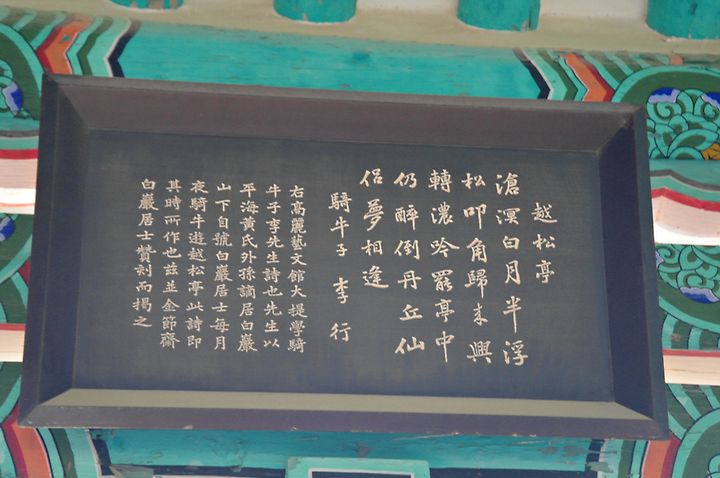 越松亭
滄溟白月半浮
松叩角歸来興
轉濃吟罷亭中
仍醉倒丹丘仙
侶夢相逢
騎牛子 李行
右高麗藝文館大提學騎
牛子李先生詩也先生以
平海黃氏外孫謫居白巖
山下自號白巖居士每月
夜騎牛遊越松亭此詩即
其時所作也玆並金節齋
白巖居士贊刻而揭之